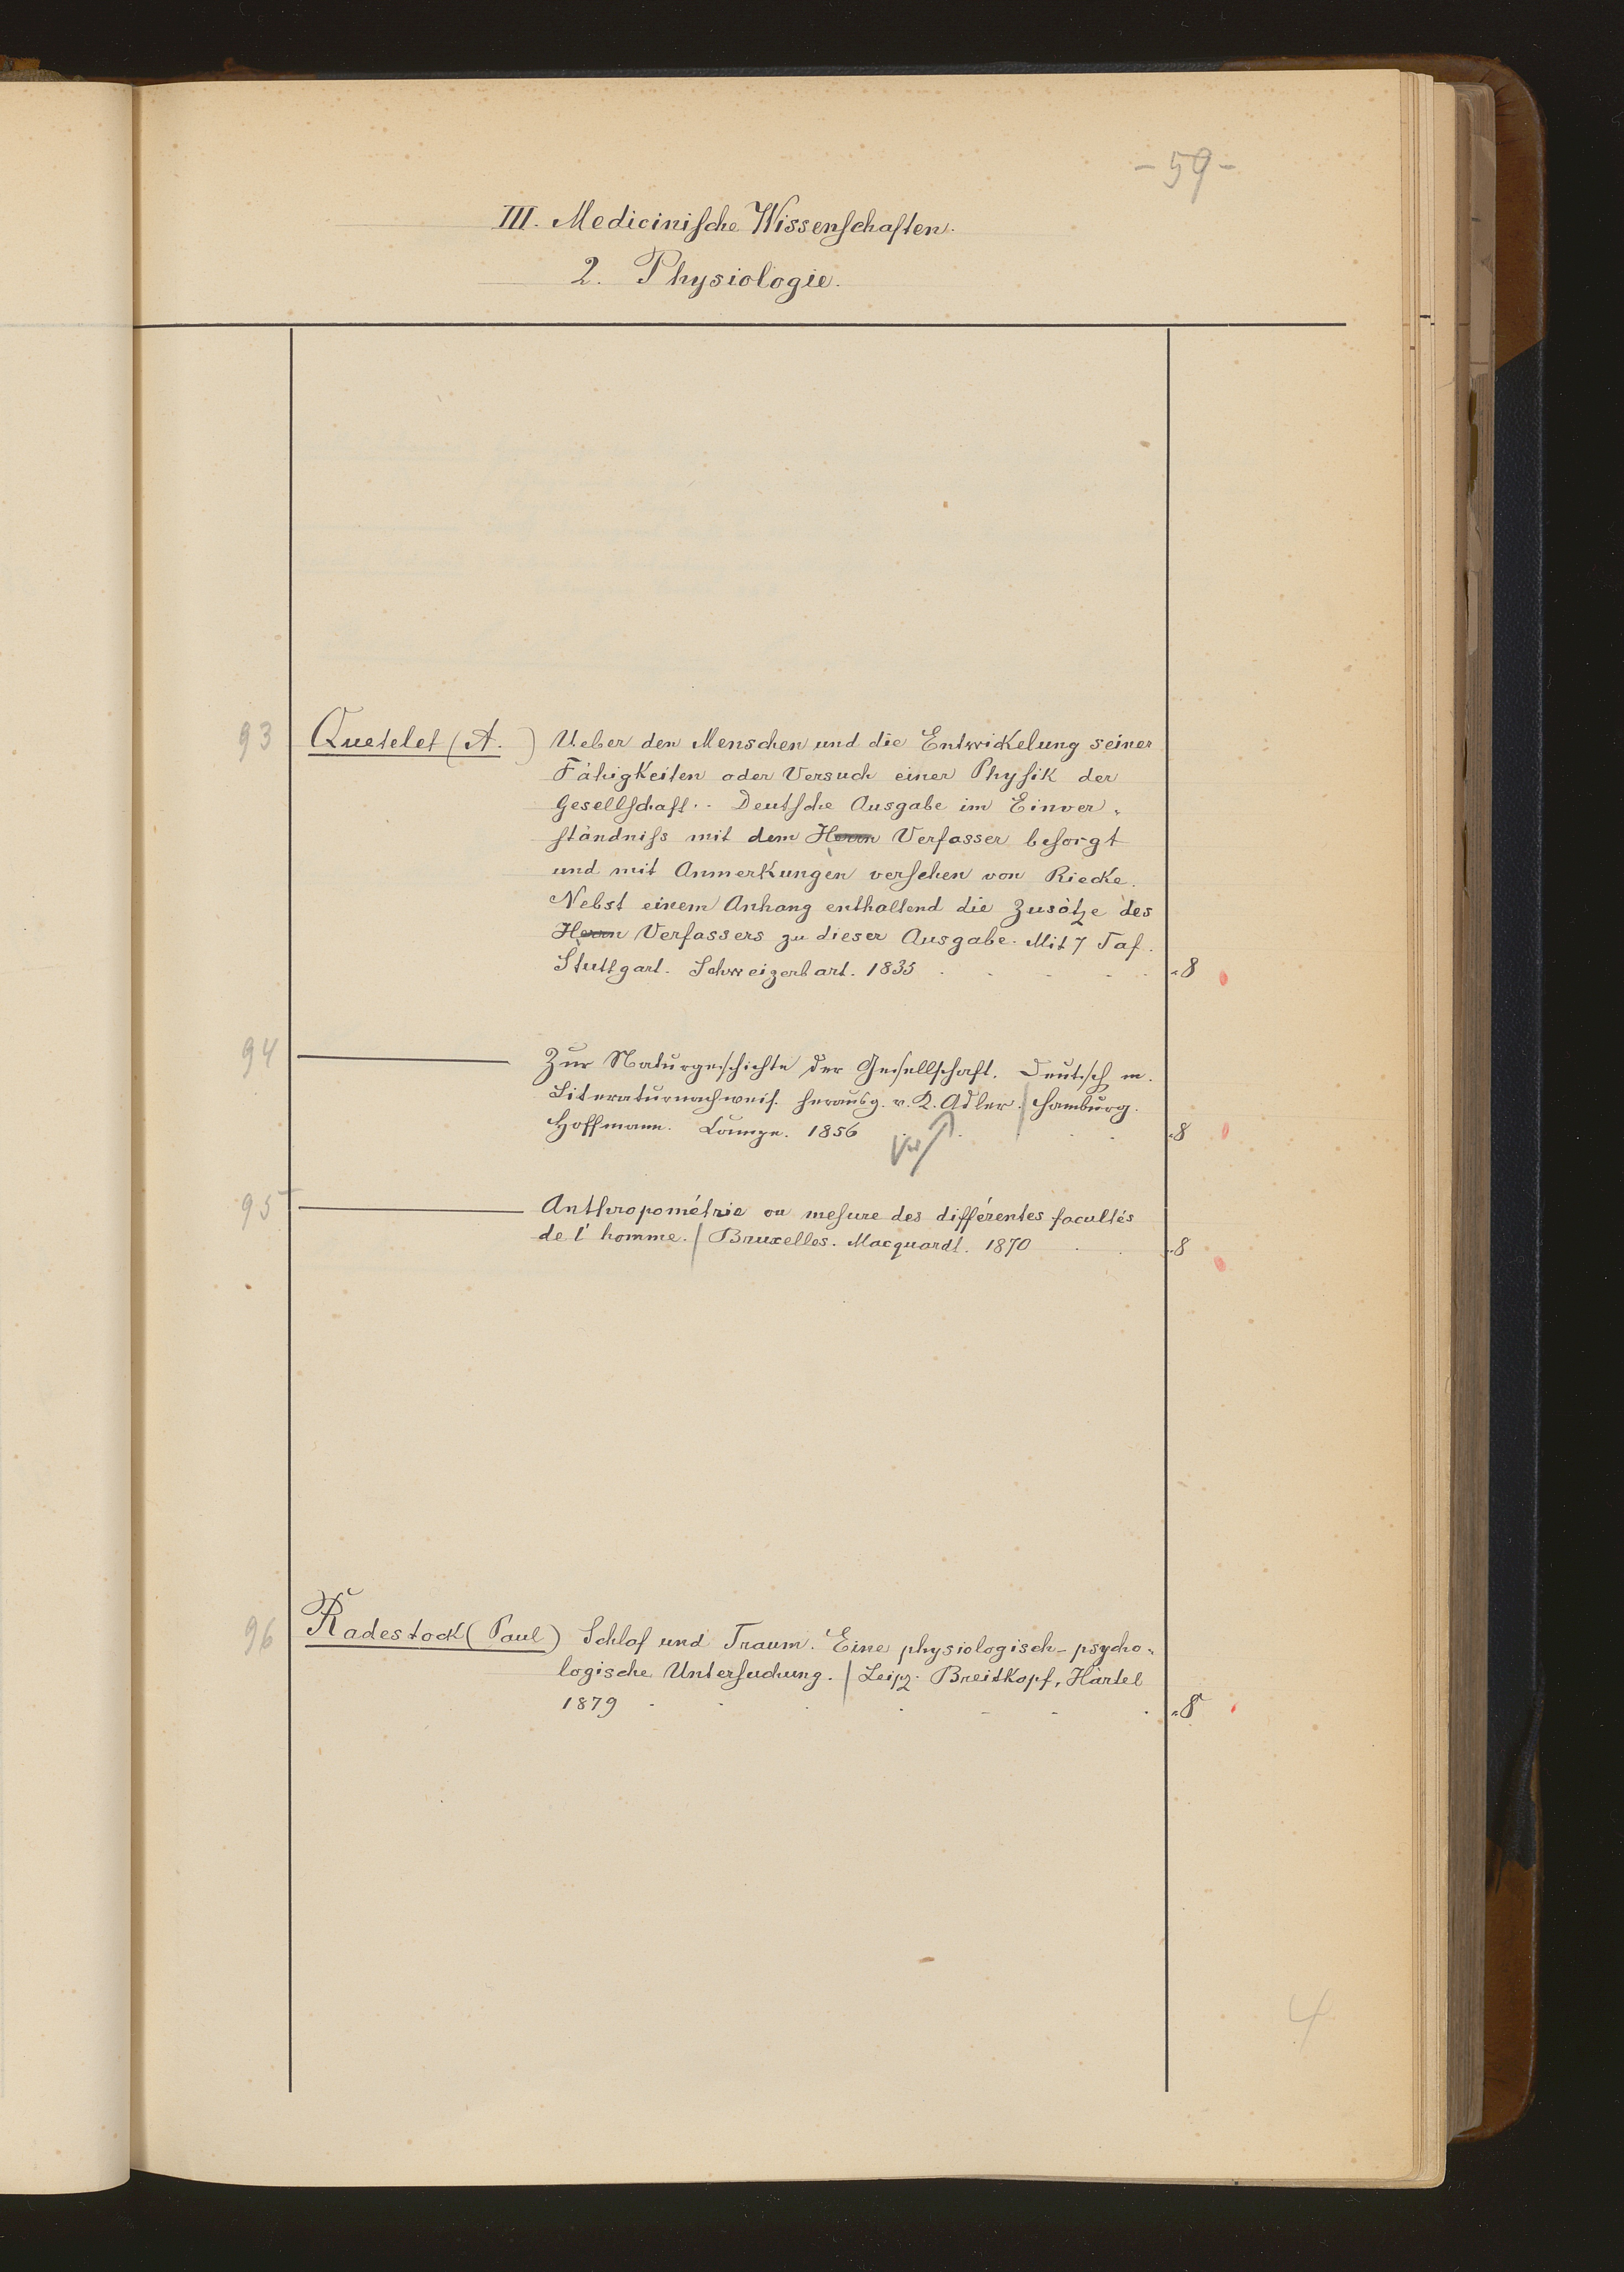 - 59 -
III. Medicinische Wissenschaften.
2. Physiologie.
93 Quetelet (A. ) Ueber den Menschen und die Entwickelung seiner
Fähigkeiten oder Versuch einer Physik der
Gesellschaft. - Deutsche Ausgabe im Einver-
ständniss mit dem Herrn Verfasser besorgt
und mit Anmerkungen versehen von Riecke.
Nebst einem Anhang enthaltend die Zusätze des
Herrn Verfassers zu dieser Ausgabe. Mit 7 Taf.
Stuttgart. Schweizerbart. 1835 . . . . . 8
94 ——— Zur Naturgeschichte der Gesellschaft. Deutsch m.
Literaturnachweis. herausg. v. K. Adler. / Hamburg.
Hoffmann. Campe. 1856 . . . . 8
95 ——— Anthropométrie ou mesure des différentes facultés
de l'homme. / Bruxelles. Macquardt. 1870 . . 8
96 Radestock (Paul) Schlaf und Traum. Eine physiologisch-psycho-
logische Untersuchung. / Leipz. Breitkopf, Härtel
1879 . . . . . . . 8
4